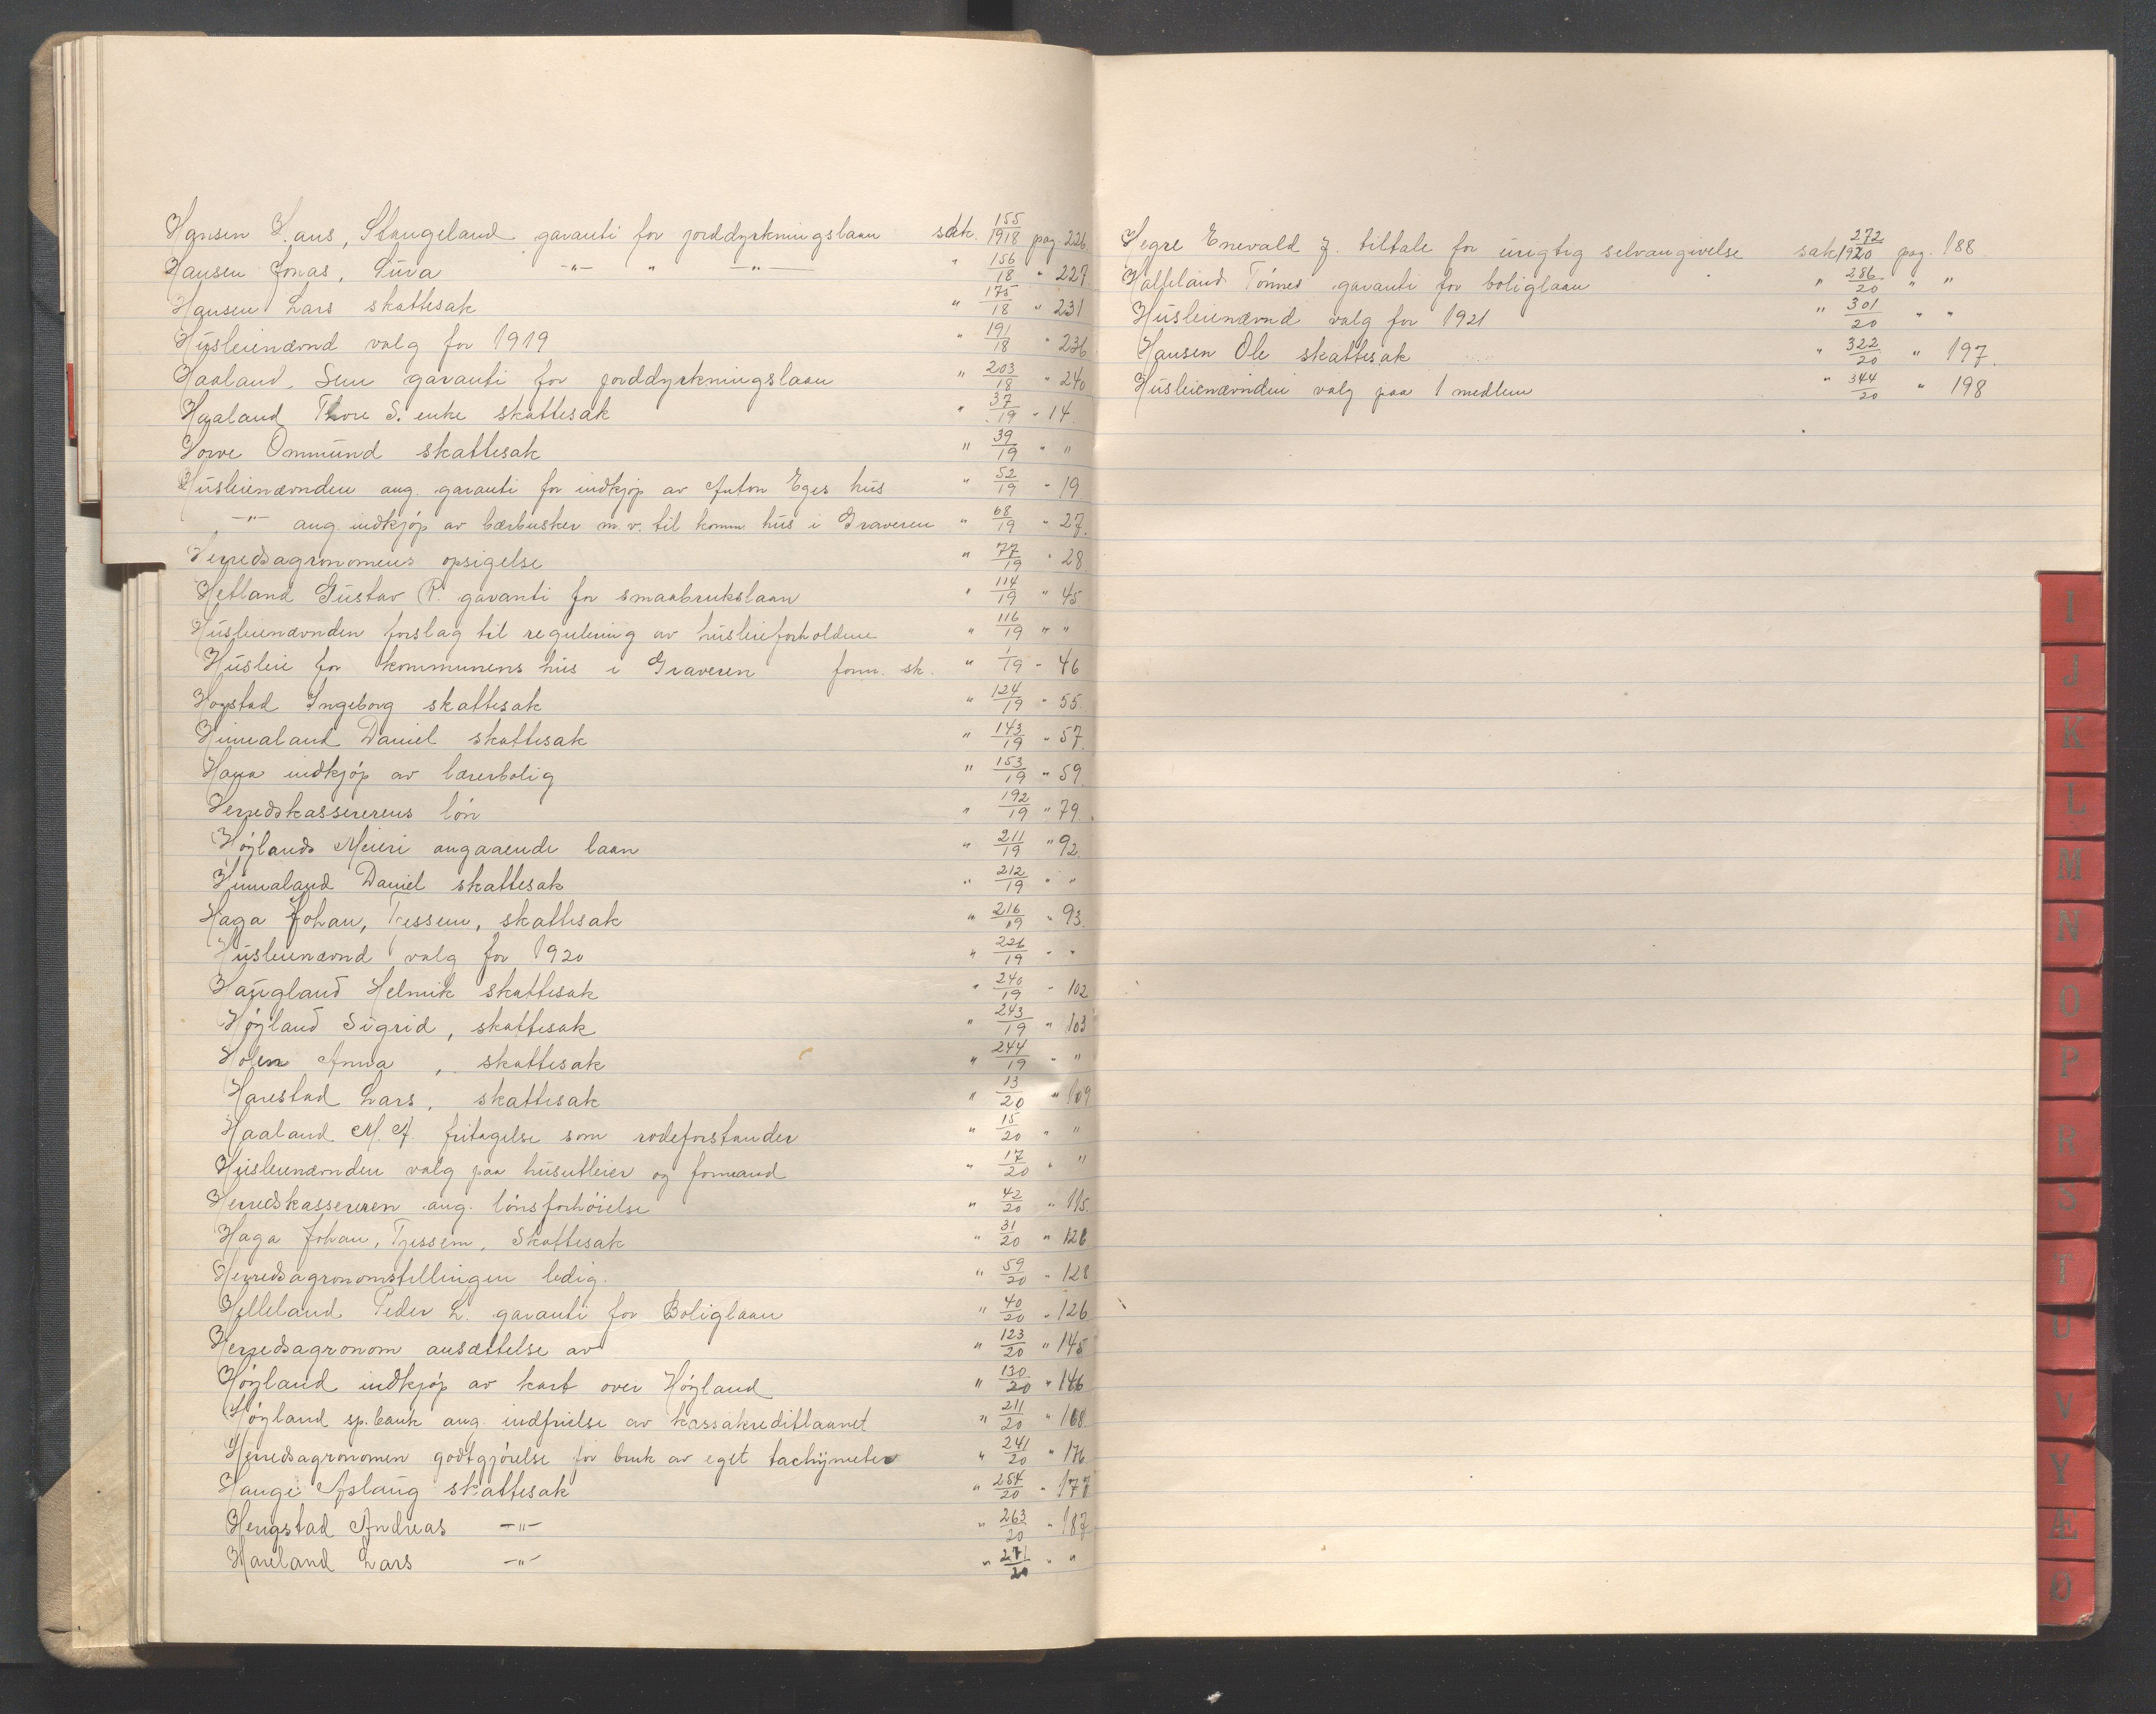 Hansen Hans, Stangeland garanti for jorddyrkningslaan sak. 155/1918 pag. 226.
Hansen Jonas, Lura -"- " -"- " 156/18 " 227
Hansen Lars skattesak " 175/18 " 231
Husleienævnd valg for 1919 " 191/18 " 236
Haaland, Sem garanti for jorddyrkningslaan " 203/18 " 240
Haaland Thore S. enke skattesak " 37/19 " 14.
Horve Ommund skattesak " 39/19 " "
Husleienævnden ang. garanti for indkjøp av Anton Eges hus " 52/19 " 19
-"- ang. indkjøp av bærbusker m.v. til komm. hus i Graveren " 68/19 " 27.
Herredsagronomens opsigelse " 77/19 " 28
Hetland Gustav R. garanti for smaabrukslaan " 114/19 " 45
Husleienævnden forslag til regulering av husleieforholdene " 116/19 " "
Husleie for kommunens hus i Graveren form. sk. " 1/19 " 46
Hogstad Ingeborg skattesak " 124/19 " 55.
Hinnaland Daniel skattesak " 143/19 " 57.
Hana indkjøp av lærerbolig " 153/19 " 59.
Herredskassererens løn " 192/19 " 79.
Høylands Meieri angaaende laan " 211/19 " 92.
Hinnaland Daniel skattesak " 212/19 " "
Haga Johan, Tjessem, skattesak " 216/19 " 93.
Husleienævnd valg for 1920 " 226/19 " "
Haugland Helmik skattesak " 240/19 " 102
Høyland Sigrid, skattesak " 243/19 " 103
Holen Anna, skattesak " 244/19 " "
Harestad Lars, skattesak " 13/20 " 109
Haaland M. A. fritagelse som rodeforstander " 15/20 " "
Husleienævnden valg paa husutleier og formand " 17/20 " "
Herredskassereren ang. lønsforhøielse " 42/20 " 115.
Haga Johan, Tjessem, Skattesak " 31/20 " 126
Herredsagronomstillingen ledig. " 59/20 " 128
Helleland Peder L. garanti for Boliglaan " 40/20 " 126
Herredsagronom ansættelse av " 123/20 " 145
Høyland indkjøp av kart over Høyland " 130/20 " 146
Høyland sp.bank ang. indfrielse av kassakreditlaanet " 211/20 " 168
Herredsagronomen godtgjørelse for bruk av eget tachymeter " 241/20 " 176
Hauge Aslaug skattesak " 254/20 " 177
Hengstad Andreas -"- " 263/20 " 187
Hareland Lars -"- " 271/20 " "
Hegre Enevald J. tiltale for urigtig selvangivelse sak 272/1920 pag. 188
Halleland Tønnes garanti for boliglaan " 286/20 " "
Husleienævnd valg for 1921 " 301/20 " "
Hansen Ole skattesak " 322/20 " 197.
Husleienævnden valg paa 1 medlem " 344/20 " 198
I
J
K
L
M
N
O
P
R
S
T
U
V
Y
Æ
Ø